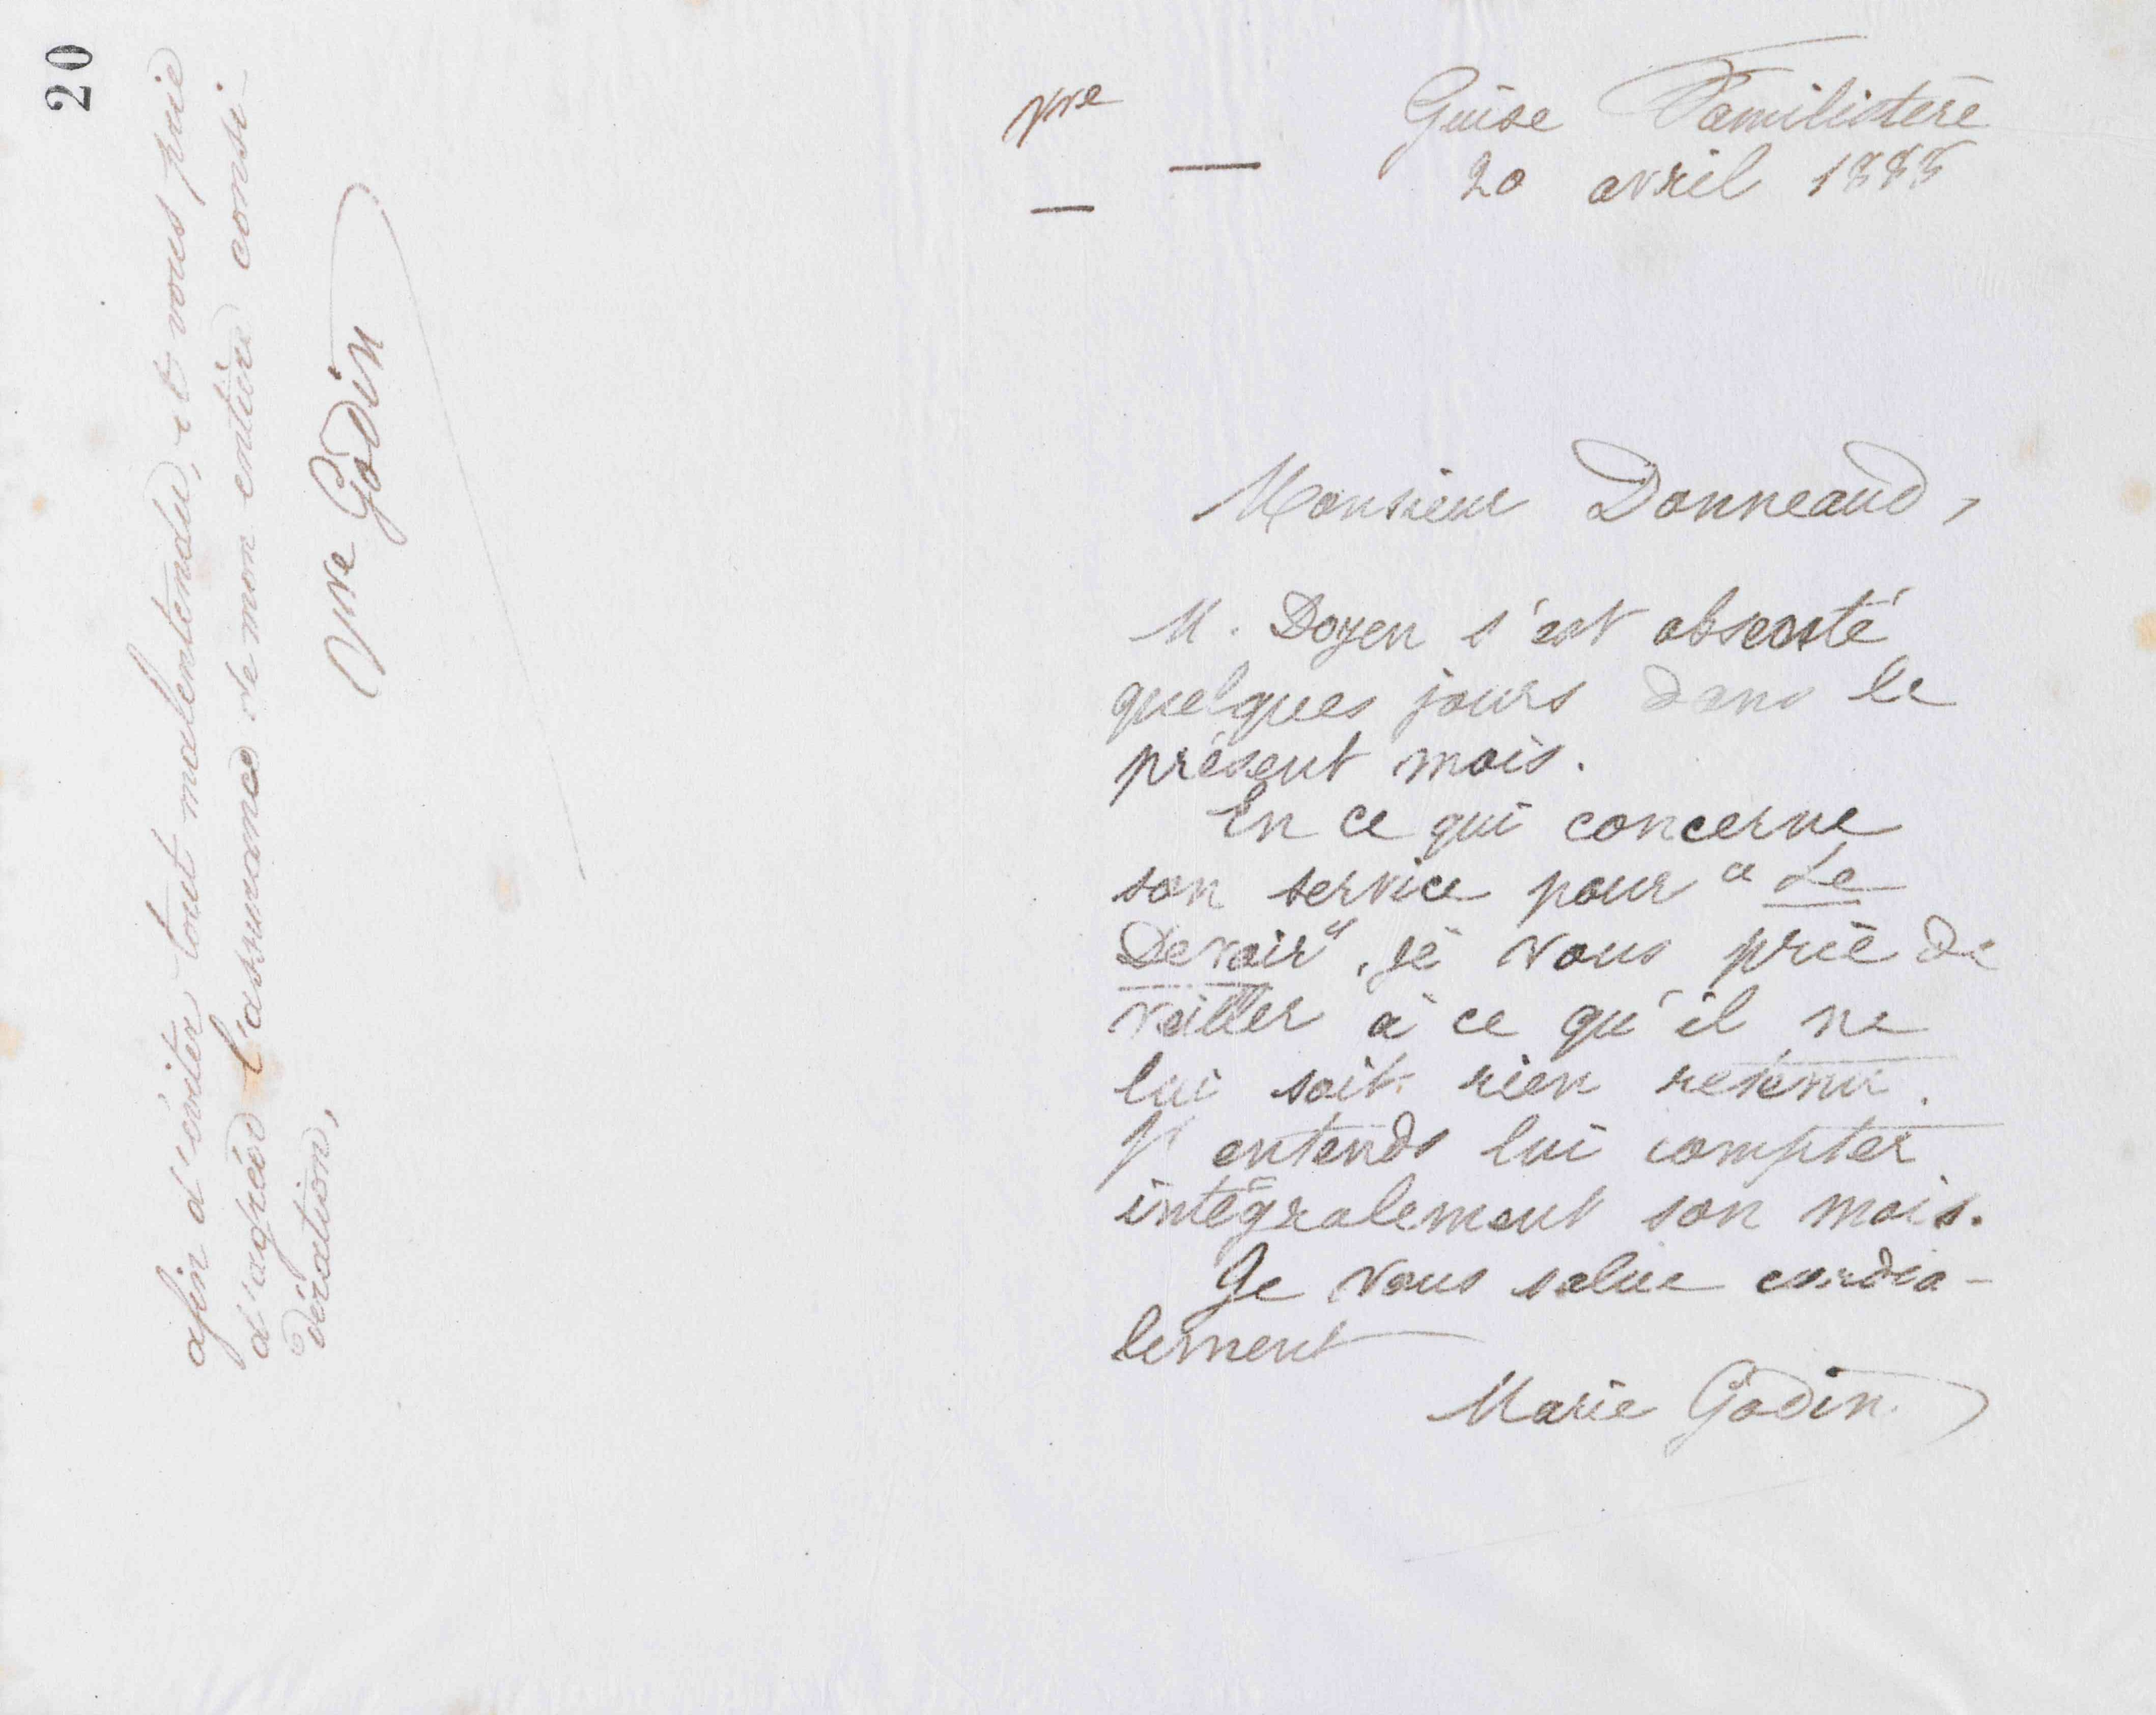 20
afin d'éviter tout malentendu, et vous prie
d'agréer l'assurance de mon entière consi-
dération,
Vve Godin
Vve
Guise Familistère
20 avril 1888
Monsieur Donneaud,
M. Doyen s'est absenté
quelques jours dans le
présent mois.
En ce qui concerne
son service pour "Le
Devoir", je vous prie de
veiller à ce qu'il ne
lui soit rien retenu.
J'entends lui compter
intégralement son mois.
Je vous salue cordia-
lement
Marie Godin